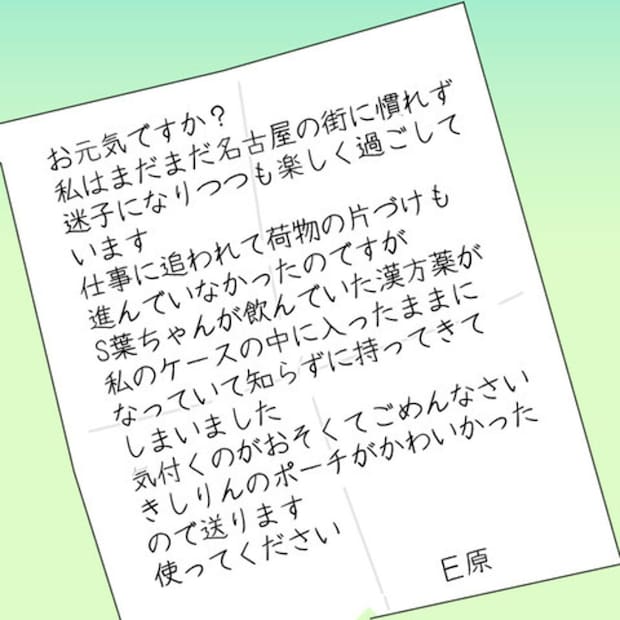 お元気ですか？
私はまだまだ名古屋の街に慣れず
迷子になりつつも楽しく過ごして
います
仕事に追われて荷物の片づけも
進んでいなかったのですが
S葉ちゃんが飲んでいた漢方薬が
私のケースの中に入ったままに
なっていて知らずに持ってきて
しまいました
気付くのがおそくてごめんなさい
きしりんのポーチがかわいかった
ので送ります
使ってください
E原